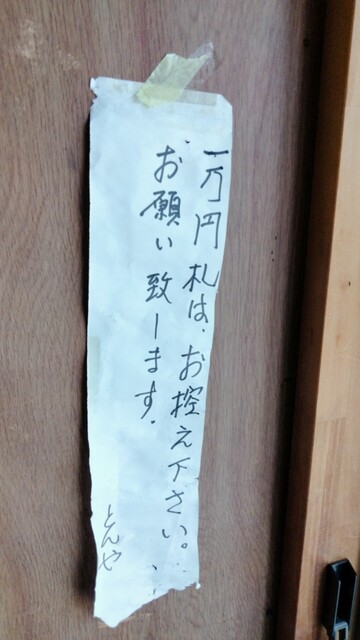 一万円札は、お控え下さい。
お願い致ーます。
とんや